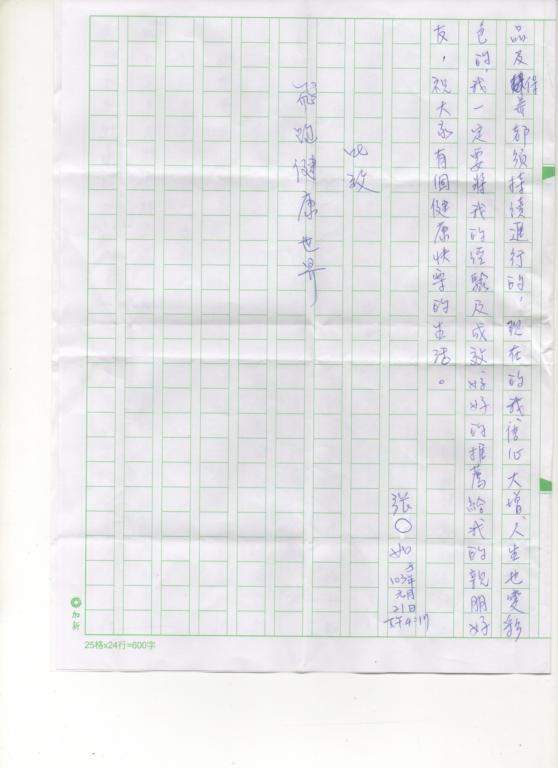 品及保養都須持續進行的,現在的我信心大增,人生也變彩
色的,我一定要將我的經驗及成效好好的推薦給我的親朋好
友,祝大家有個健康快樂的生活。
張○如
103年
元月
21日
下午4:17
此致
飛跑健康世界
加新
25格x24行=600字